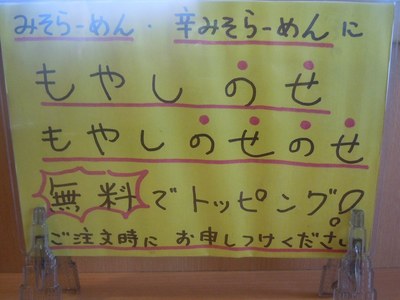 みそらーめん・辛みそらーめんに
もやしのせ
もやしのせのせ
無料でトッピング♪
ご注文時にお申しつけください